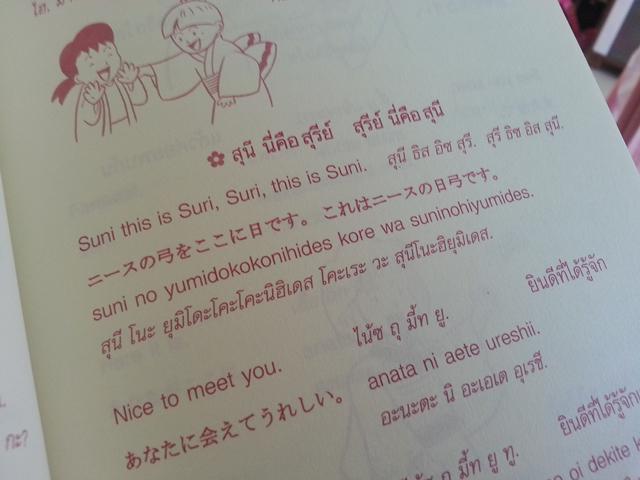 สุนี นี่คือ สุรีย์ สุรีย์ นี่คือ สุนี
Suni this is Suri, Suri, this is Suni. สุนี ธิส อิซ สุรี. สุรี ธิซ อิส สุนี.
ニースの弓をここに日です。これはニースの日弓です。
suni no yumidokokonihides kore wa suninohiyumides.
สุนี โนะ ยุมิโดะโคะโคะนิฮิเดส โคะเระ วะ สุนีโนะฮิยุมิเดส.
ยินดีที่ได้รู้จัก
Nice to meet you. ไน้ซ ถุ มี้ท ยู.
あなたに会えてうれしい。 anata ni aete ureshii.
อะนะตะ นิ อะเอเต อุเรชี.
ยินดีที่ได้รู้จัก
มี้ท ยู ทู.
oi dekite
กะ?